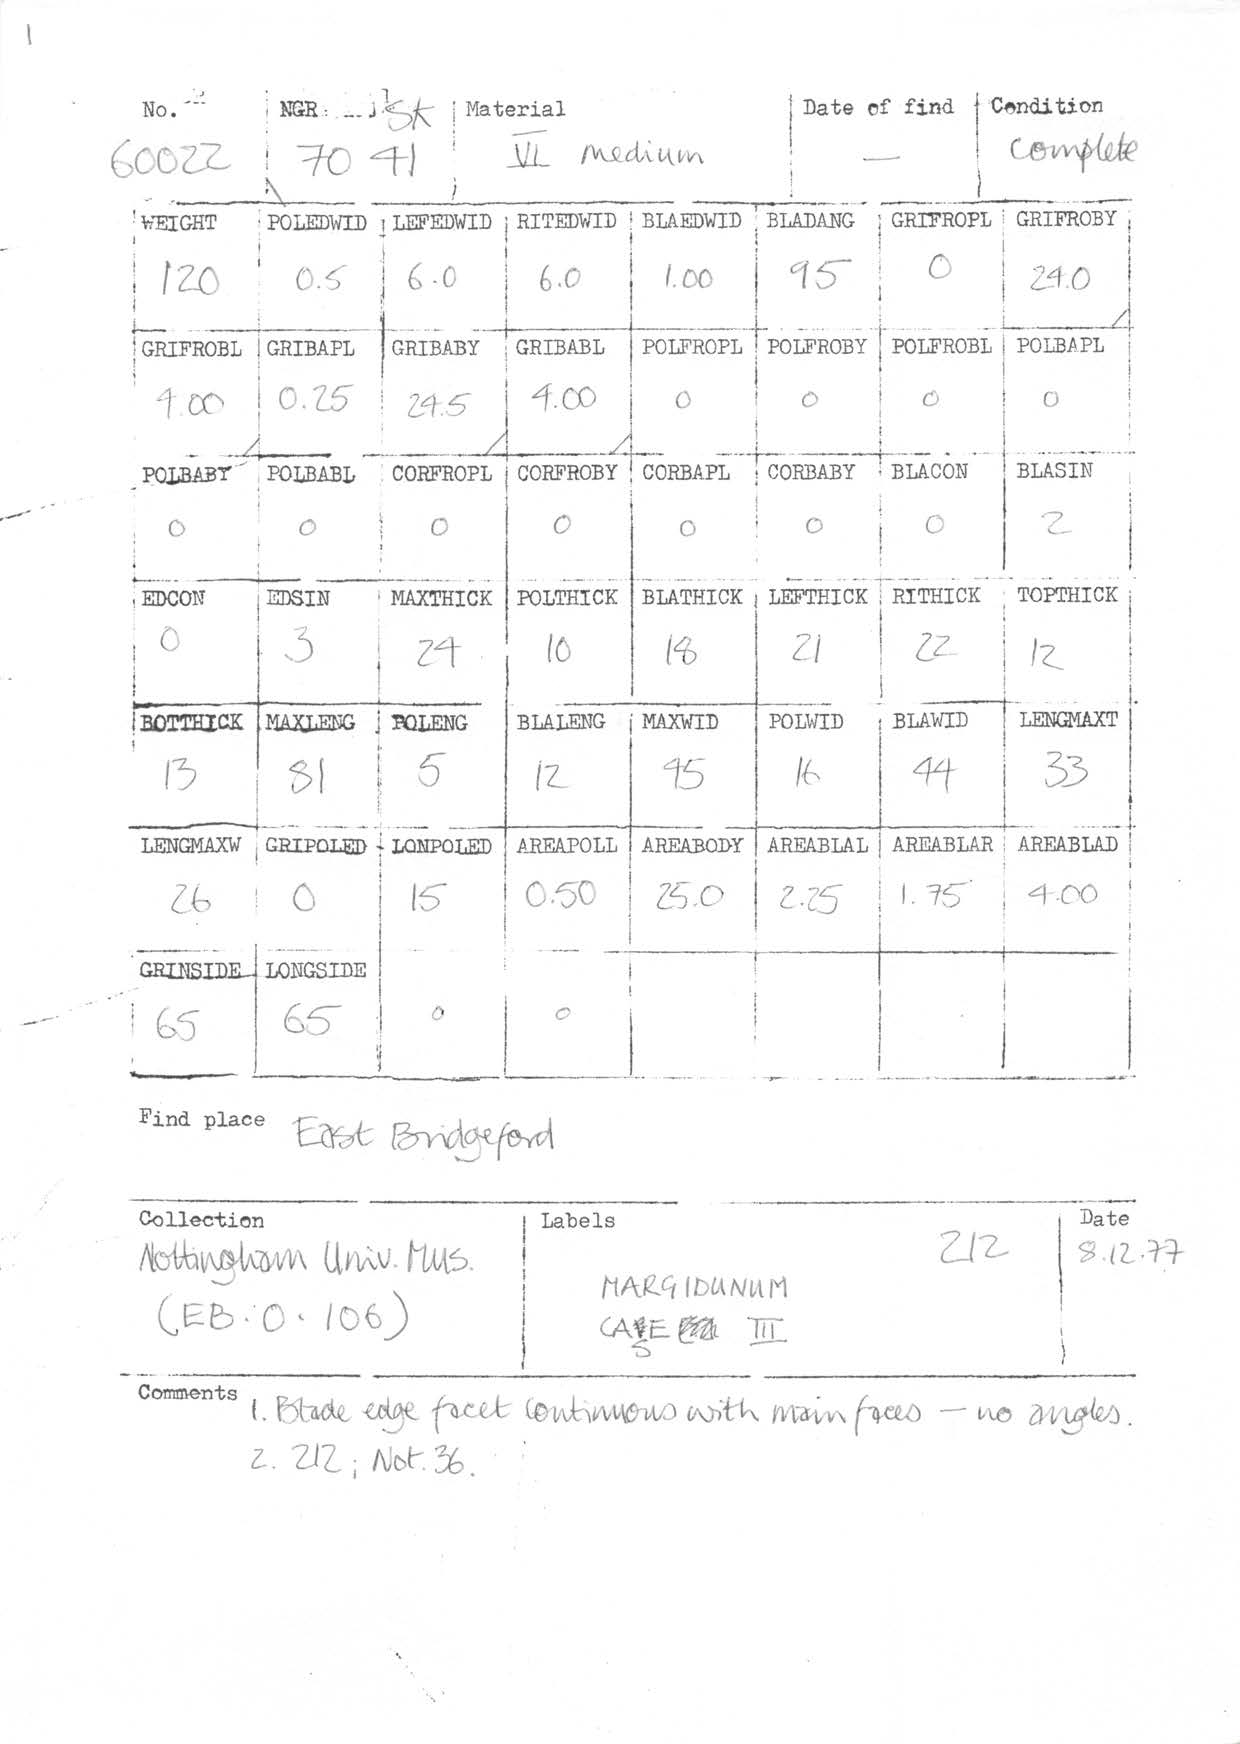 1
No. NGR: SK Material Date of find Condition
60022 70 41 VI medium — complete
WEIGHT POLEDWID LEFEDWID RITEDWID BLAEDWID BLADANG GRIFROPL GRIFROBY
120 0.5 6.0 6.0 1.00 95 0 24.0
GRIFROBL GRIBAPL GRIBABY GRIBABL POLFROPL POLFROBY POLFROBL POLBAPL
4.00 0.25 24.5 4.00 0 0 0 0
POLBABY POLBABL CORFROPL CORFROBY CORBAPL CORBABY BLACON BLASIN
0 0 0 0 0 0 0 2
EDCON EDSIN MAXTHICK POLTHICK BLATHICK LEFTHICK RITHICK TOPTHICK
0 3 24 10 18 21 22 12
BOTTHICK MAXLENG POLENG BLALENG MAXWID POLWID BLAWID LENGMAXT
13 81 5 12 45 16 44 33
LENGMAXW GRIPOLED LONPOLED AREAPOLL AREABODY AREABLAL AREABLAR AREABLAD
26 0 15 0.50 25.0 2.25 1.75 4.00
GRINSIDE LONGSIDE
65 65 0 0
Find place East Bridgeford
Collection Labels Date
Nottingham Univ. Mus. 212 8.12.77
(EB.O.106) MARGIDUNUM
CASE III
Comments 1. Blade edge facet continuous with main faces — no angles.
2. 212; Not. 36.